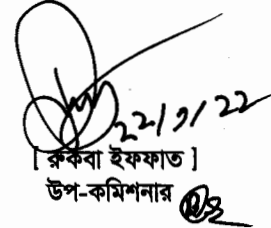 22/9/22
[ রুকবা ইফফাত ]
উপ-কমিশনার